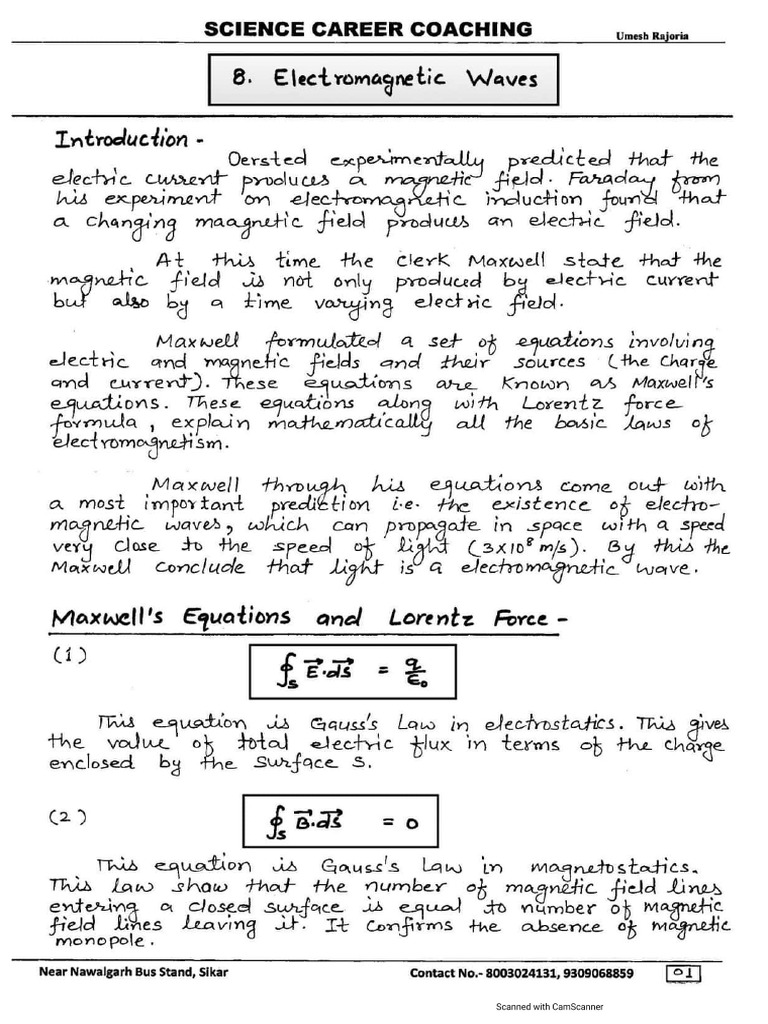 SCIENCE CAREER COACHING
Umesh Rajoria
8. Electromagnetic Waves
Introduction -
Oersted experimentally predicted that the
electric current produces a magnetic field. Faraday from
his experiment on electromagnetic induction found that
a changing maagnetic field produces an electric field.
At this time the clerk Maxwell state that the
magnetic field is not only produced by electric current
but also by a time varying electric field.
Maxwell formulated a set of equations involving
electric and magnetic fields and their sources (the charge
and current). These equations are known as Maxwell's
equations. These equations along with Lorentz force
formula, explain mathematically all the basic laws of
electromagnetism.
Maxwell through his equations come out with
a most important prediction i.e. the existence of electro-
magnetic waves, which can propagate in space with a speed
very close to the speed of light (3×10⁸ m/s). By this the
Maxwell conclude that light is a electromagnetic wave.
Maxwell's Equations and Lorentz Force -
(1)
∮s E⃗·ds⃗ = q/ε₀
This equation is Gauss's Law in electrostatics. This gives
the value of total electric flux in terms of the charge
enclosed by the surface s.
(2)
∮s B⃗·ds⃗ = 0
This equation is Gauss's Law in magnetostatics.
This law show that the number of magnetic field lines
entering a closed surface is equal to number of magnetic
field lines leaving it. It confirms the absence of magnetic
monopole.
Near Nawalgarh Bus Stand, Sikar
Contact No.- 8003024131, 9309068859
01
Scanned with CamScanner